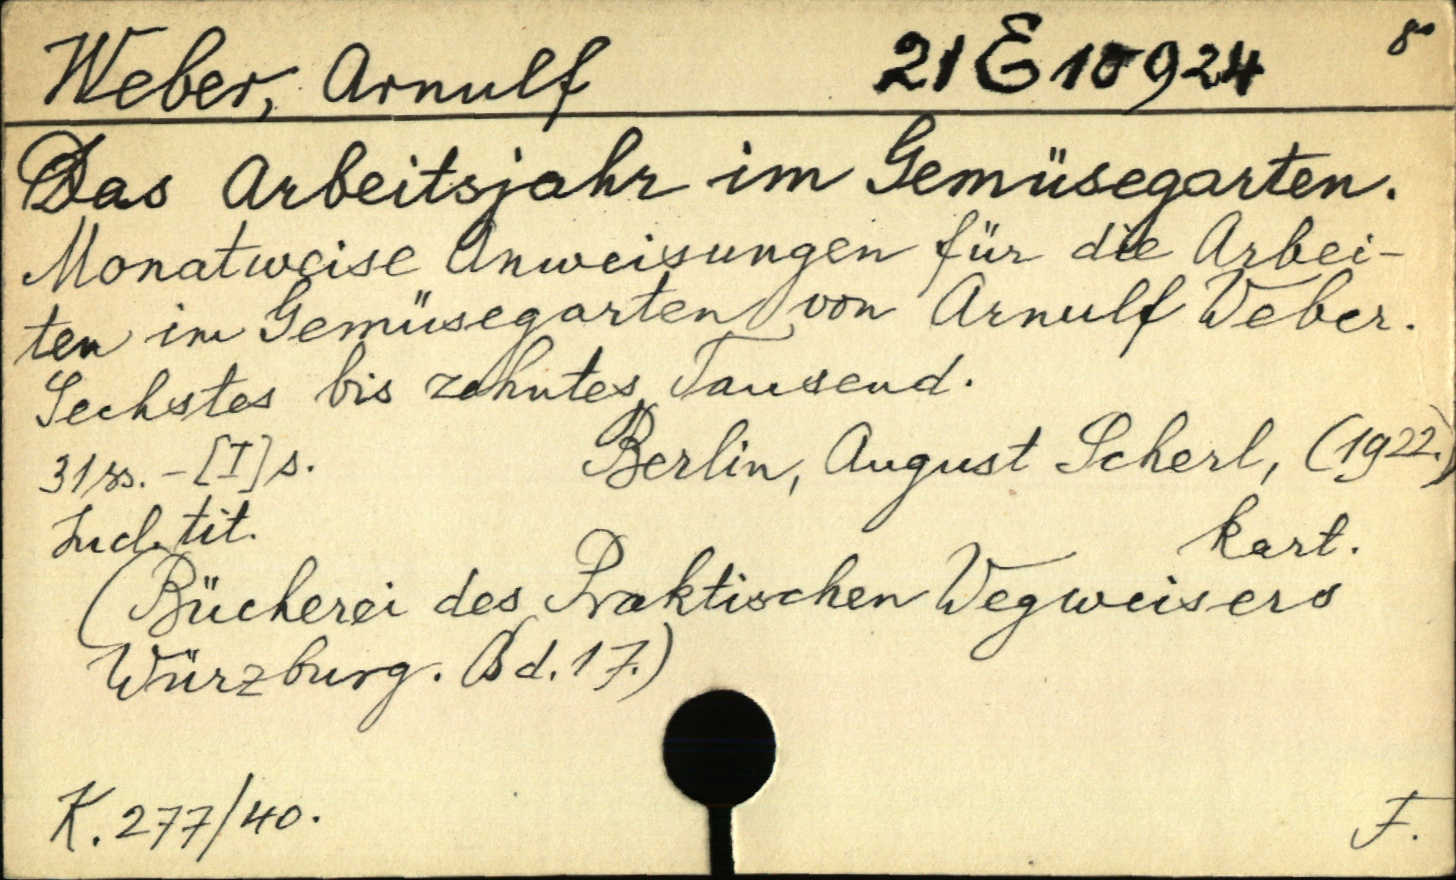 Weber, Arnulf 21 E 10924 8°
Das Arbeitsjahr im Gemüsegarten.
Monatweise Anweisungen für die Arbei-
ten im Gemüsegarten von Arnulf Weber.
Sechstes bis zehntes Tausend.
31 ss. - [I] s. Berlin, August Scherl, (1922.)
Incl. tit. kart.
(Bücherei des Praktischen Wegweisers
Würzburg. Bd. 17.)
K. 277/40. F.